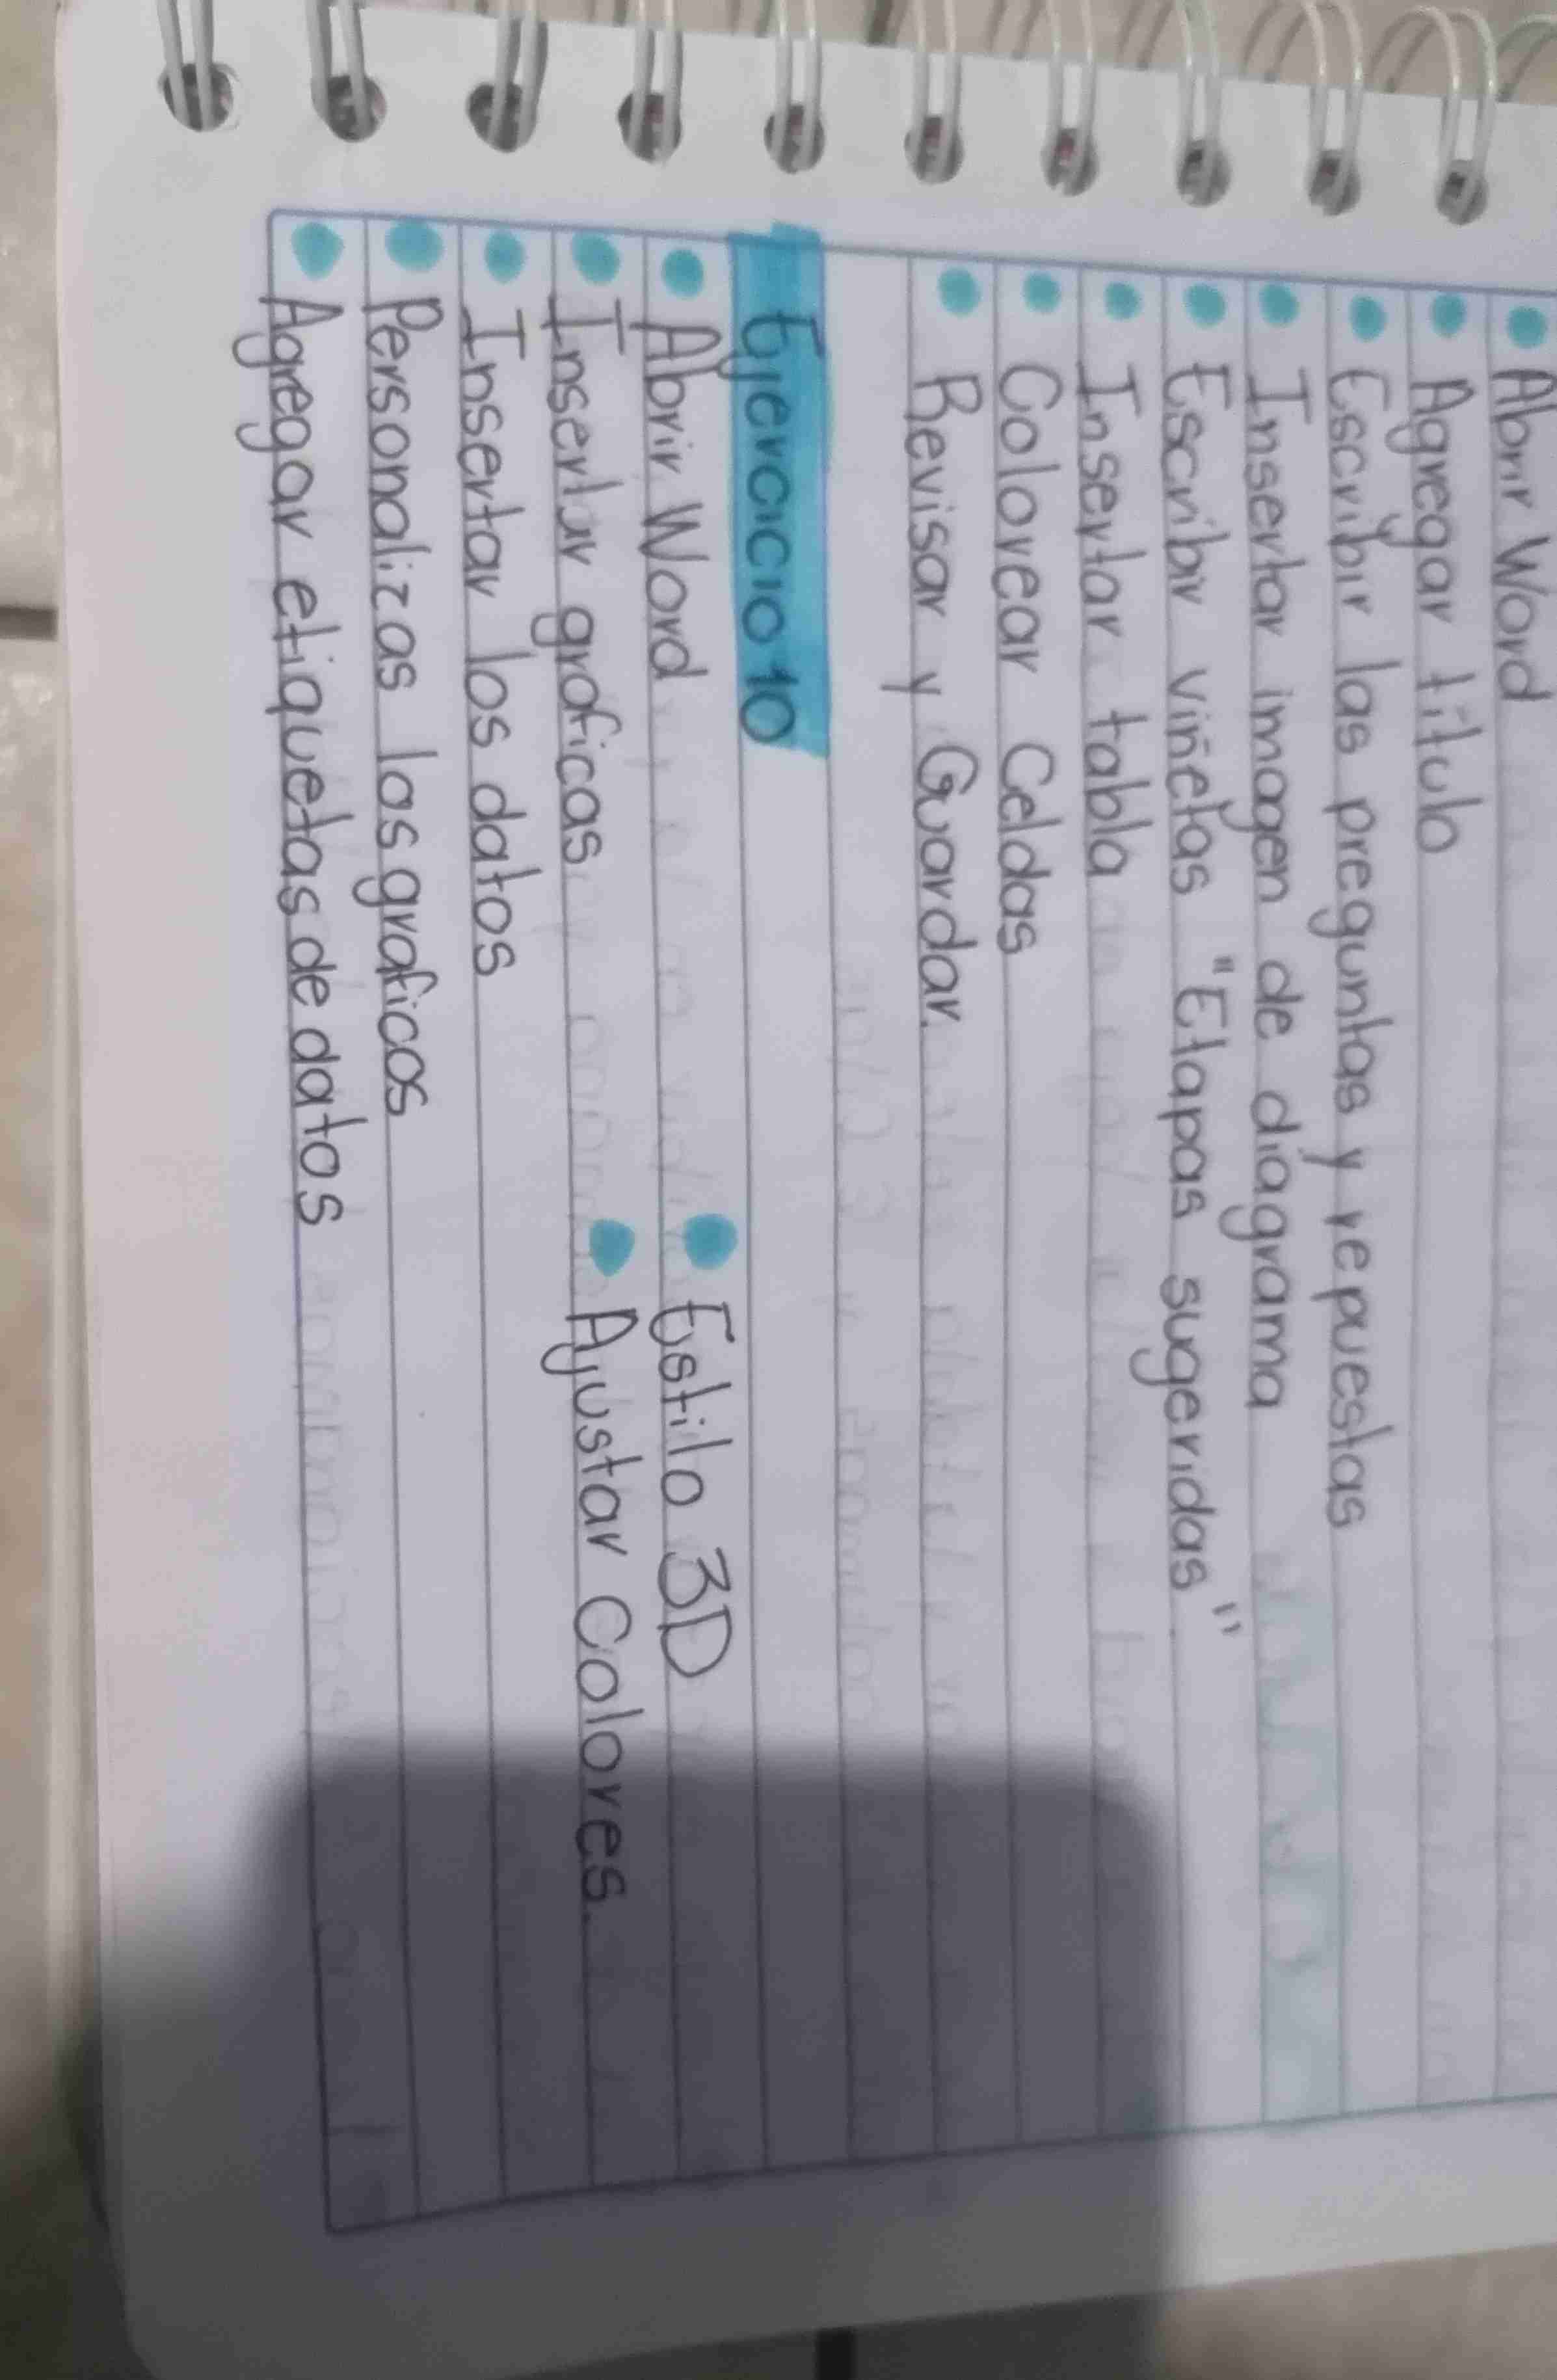 • Abrir Word
• Agregar titulo
• Escribir las preguntas y repuestas
• Insertar imagen de diagrama
• Escribir viñetas "Etapas sugeridas"
• Insertar tabla
• Colorear Celdas
• Revisar y Guardar.
Ejercicio 10
• Abrir Word • Estilo 3D
• Insertar graficas • Ajustar Colores
• Insertar los datos
• Personalizas los graficos
• Agregar etiquetas de datos